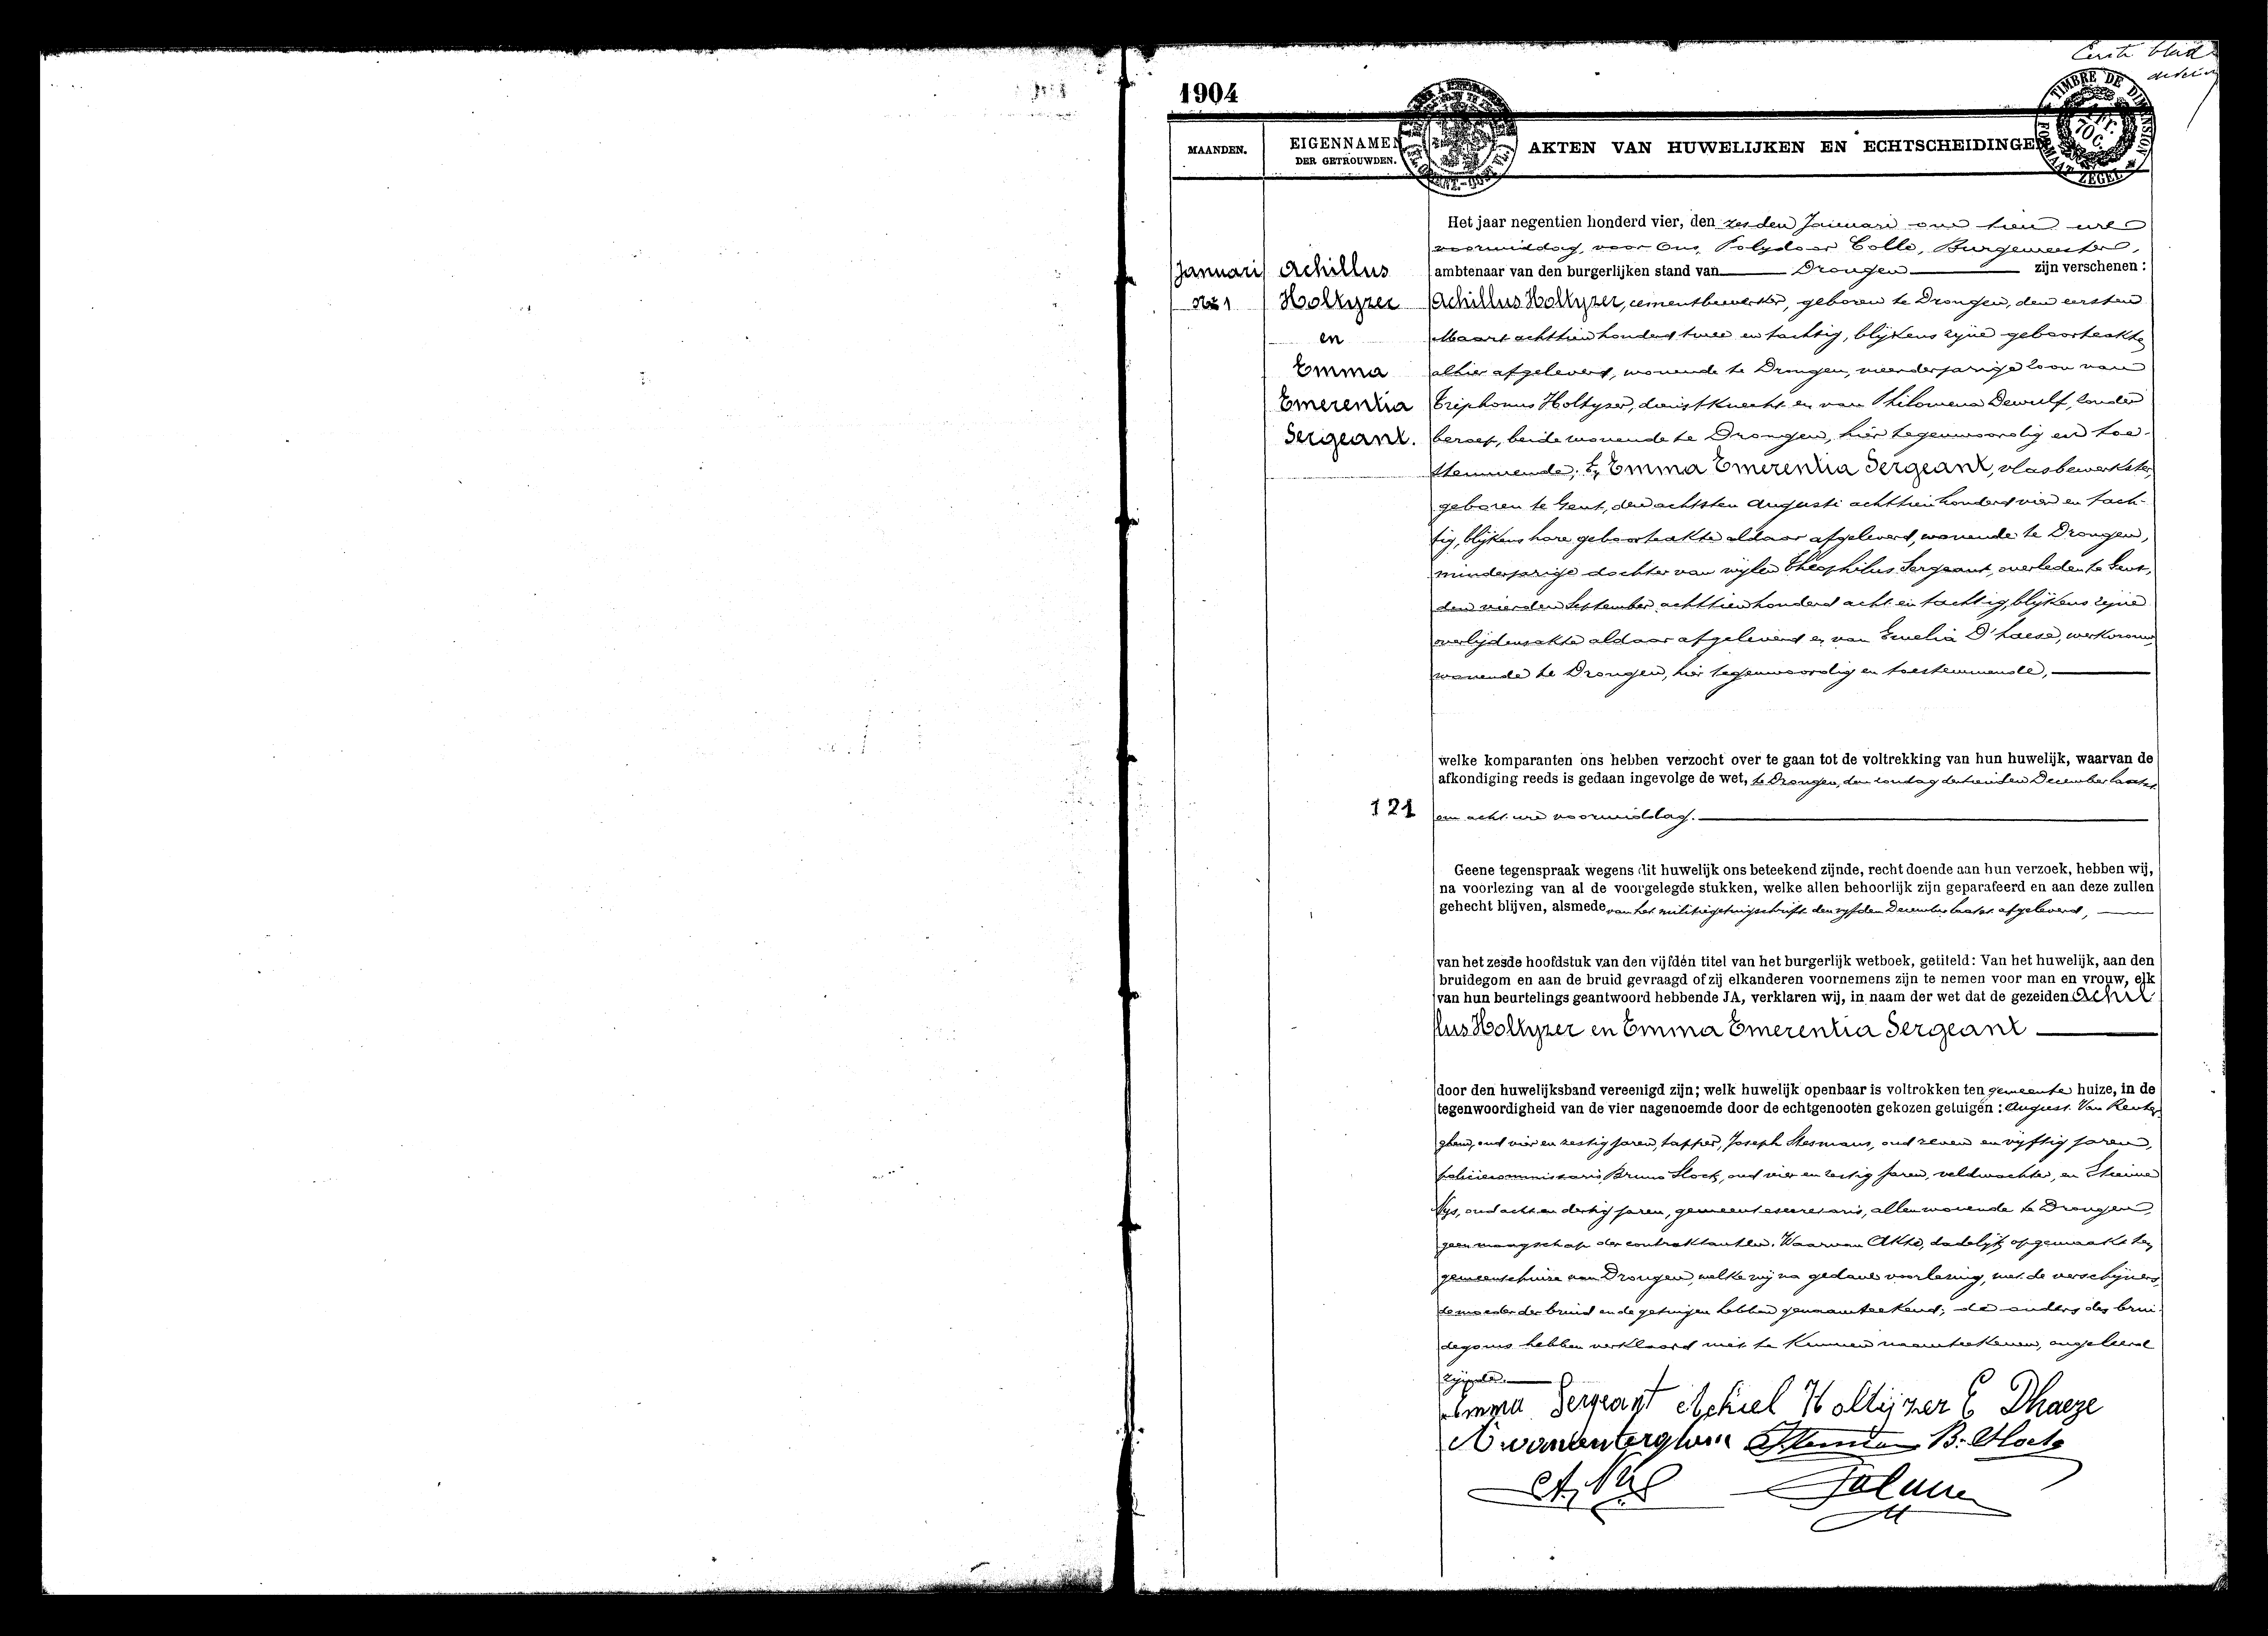 Eerste blad
1904
TIMBRE DE DIMENSION
70 C.
FORMAAT ZEGEL
MAANDEN.
EIGENNAMEN
DER GETROUWDEN.
AKTEN VAN HUWELIJKEN EN ECHTSCHEIDINGEN
Januari
No 1
Achillus
Holtyzer
en
Emma
Emerentia
Sergeant.
Het jaar negentien honderd vier, den zesden Januari om tien ure
voormiddag, voor Ons, Polydoor Colle, Burgemeester,
ambtenaar van den burgerlijken stand van Drongen zijn verschenen :
Achillus Holtyzer, cementbewerker, geboren te Drongen, den eersten
Maart achttien honderd twee en tachtig, blijkens zijne geboorteakte
alhier afgeleverd, wonende te Drongen, meerderjarige zoon van
Triphonus Holtyzer, dienstknecht en van Philomena Dewulf, zonder
beroep, beide wonende te Drongen, hier tegenwoordig en toe-
stemmende; En Emma Emerentia Sergeant, vlasbewerkster,
geboren te Gent, den achtsten Augusti achttien honderd vier en tach-
tig, blijkens hare geboorteakte aldaar afgeleverd, wonende te Drongen,
minderjarige dochter van wijlen Theophilus Sergeant, overleden te Gent,
den vierden September achttien honderd acht en tachtig, blijkens zijne
overlijdensakte aldaar afgeleverd en van Emelia D'haese, werkvrouw,
wonende te Drongen, hier tegenwoordig en toestemmende,
welke komparanten ons hebben verzocht over te gaan tot de voltrekking van hun huwelijk, waarvan de
afkondiging reeds is gedaan ingevolge de wet, te Drongen, den zondag dertienden December laatst
121
om acht ure voormiddag.
Geene tegenspraak wegens dit huwelijk ons beteekend zijnde, recht doende aan hun verzoek, hebben wij,
na voorlezing van al de voorgelegde stukken, welke allen behoorlijk zijn geparafeerd en aan deze zullen
gehecht blijven, alsmede van het militiegetuigschrift den vijfden December laatst afgeleverd,
van het zesde hoofdstuk van den vijfden titel van het burgerlijk wetboek, getiteld: Van het huwelijk, aan den
bruidegom en aan de bruid gevraagd of zij elkanderen voornemens zijn te nemen voor man en vrouw, elk
van hun beurtelings geantwoord hebbende JA, verklaren wij, in naam der wet dat de gezeiden Achil
lus Holtyzer en Emma Emerentia Sergeant
door den huwelijksband vereenigd zijn; welk huwelijk openbaar is voltrokken ten gemeente huize, in de
tegenwoordigheid van de vier nagenoemde door de echtgenooten gekozen getuigen : August Van Renter
ghem, oud vier en zestig jaren, tapper, Joseph Stesmans, oud zeven en vijftig jaren,
policiecommissaris, Bruno Stock, oud vier en zestig jaren, veldwachter, en Etienne
Nys, oud acht en dertig jaren, gemeentesecretaris, allen wonende te Drongen,
geen maagschap der contraktanten. Waarvan Akte, dadelijk opgemaakt ten
gemeentehuize van Drongen, welke wij na gedane voorlezing, met de verschijners,
de moeder der bruid en de getuigen hebben genaamteekend; de ouders des brui-
degoms hebben verklaard niet te kunnen naamteekenen, ongeleerd
zijnde.
Emma Sergeant Achiel Holtijzer E Dhaeze
A vanrenterghem B. Stock